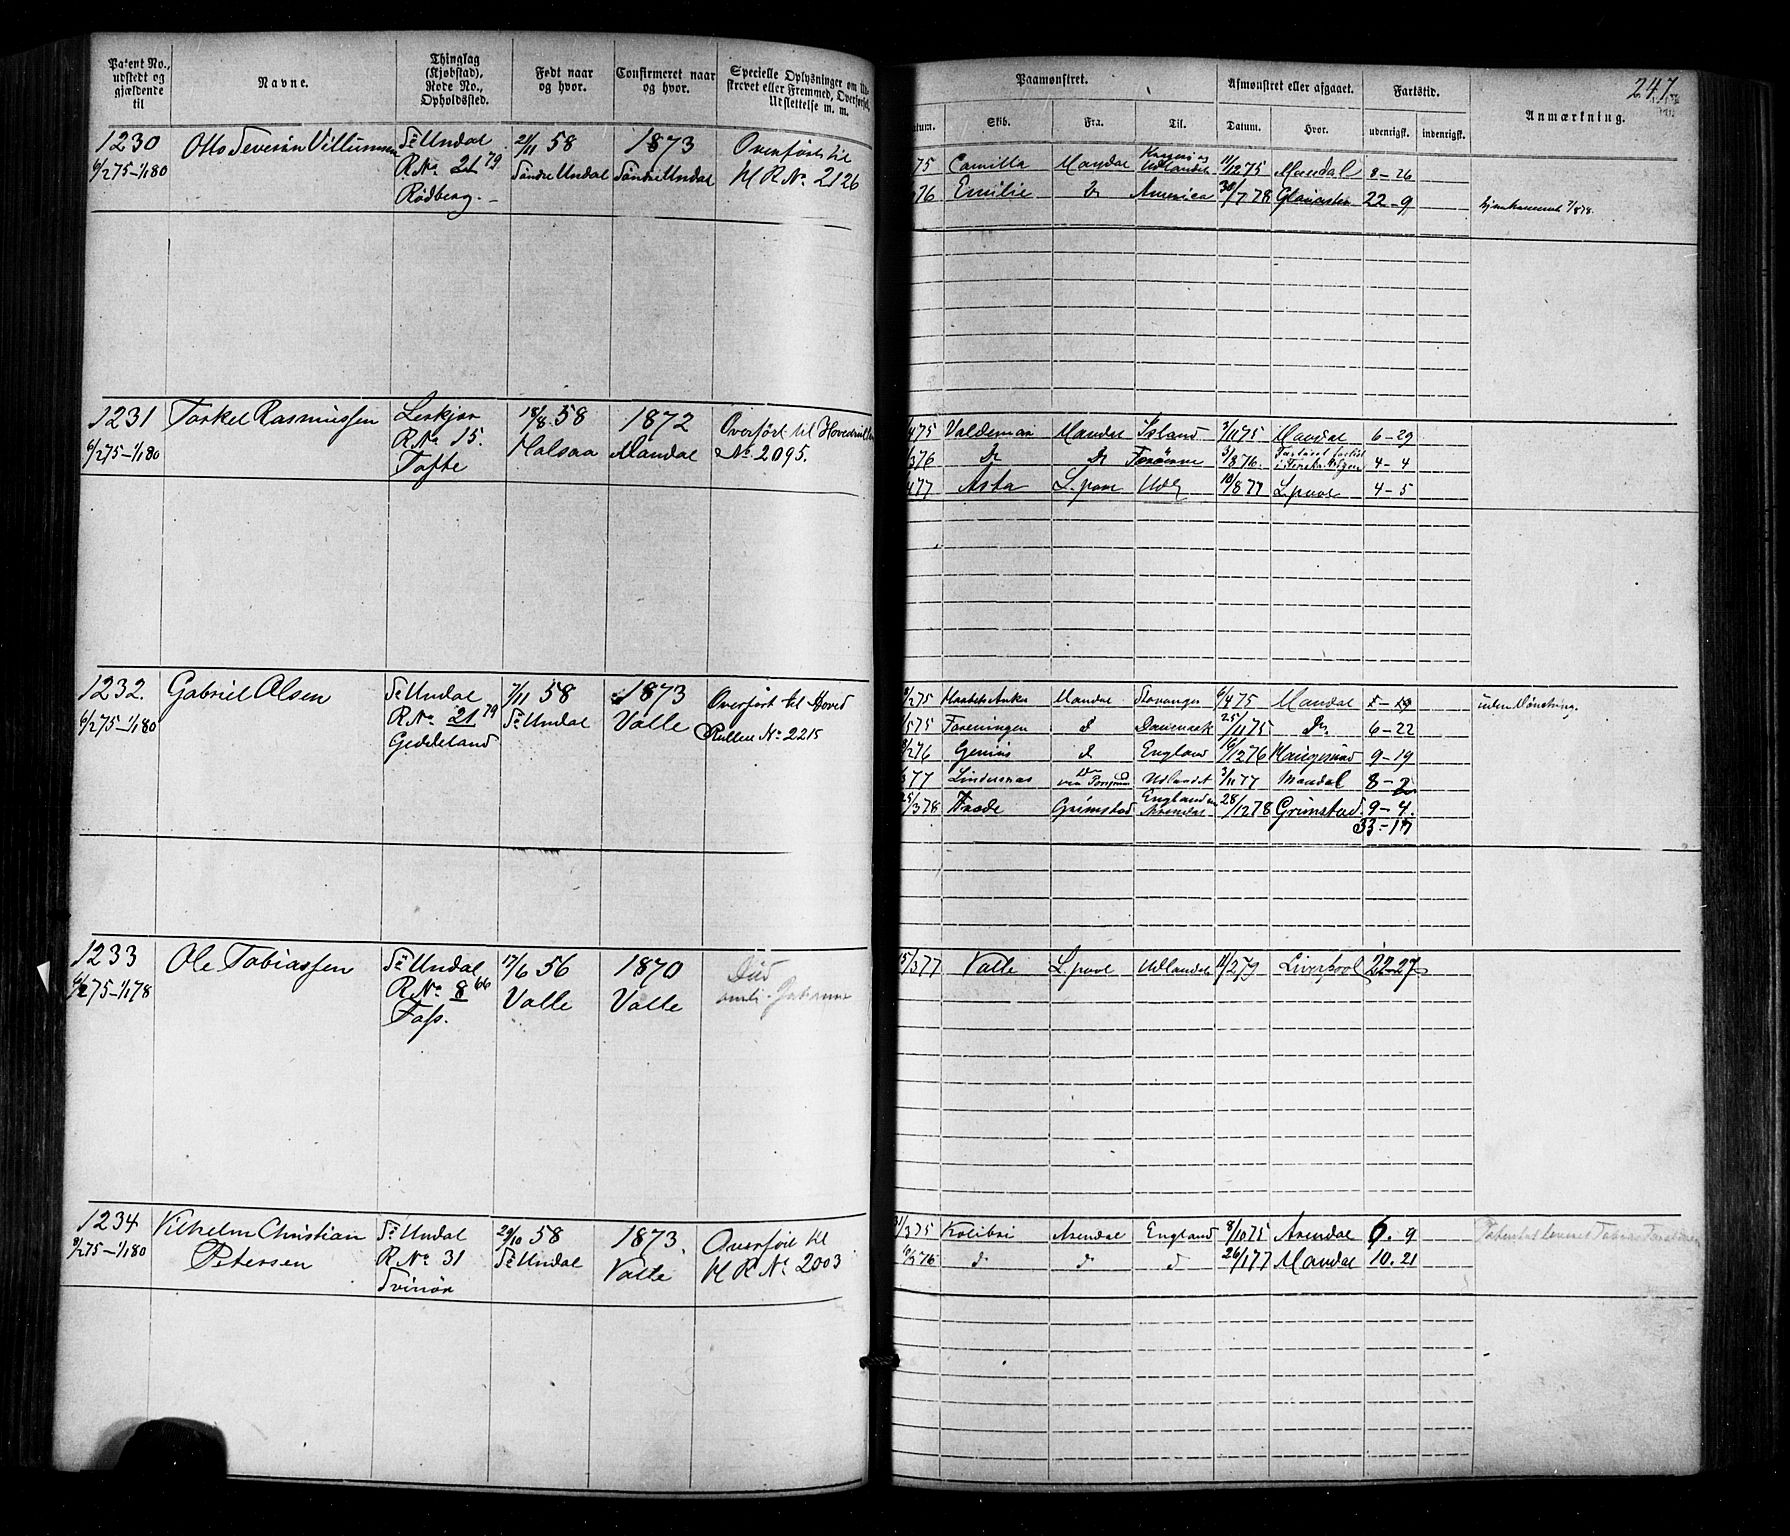 Patent No., udstedt og gjældende til
Navne.
Thinglag (Kjøbstad), Rode No., Opholdssted.
Født naar og hvor.
Confirmeret naar og hvor.
Specielle Oplysninger om Ud-
skrevet eller Fremmed, Overførsel,
Udslettelse m. m.
Paamønstret.
Skib.
Fra.
Til.
Afmønstret eller afgaaet.
Datum.
Hvor.
Fartstid.
udenrigsk.
indenrigsk.
Anmærkning.
247
1230
6/2 75 – 1/1 80
Otto Severin Villumsen
Sø Undal
R No 21 79
Rödberg.
21/11 58
Söndre Undal
1873
Söndre Undal
Overført til
H R No. 2126
75 Camilla Mandal Udlandet 11/12 75 Mandal 8-26
76 Emilie Do America 30/7 78 22-9
hjemkommet 7/878.
1231
6/2 75 – 1/1 80
Torkel Rasmussen
R No 15.
Tofte
18/8 58
Halsaa
1872
Mandal
Overført til Hovedrullen
No. 2095.
475 Valdemar Mandal Island 3/11 75 Mandal 6-29
376 Do Do 3/8 76 4-4
477 Asta L.pool Udl 10/8 77 L.pool 4-5
1232.
6/2 75 – 1/1 80
Gabriel Olsen
Sø Undal
R No 21 79
Geddeland
7/11 58
Sø Undal
1873
Valle
Overført til Hoved
Rullen No 2215
275 Mandal Stavanger 6/4 75 Mandal
uden Mönstring.
575 Foreningen d Danemark 25/11 75 Do 6-22
276 Genius d England 6/12 76 Haugesund 9-19
77 Lindesnæs Udlandet 3/11 77 Mandal 8-2
25/3 78 Grimstad England 28/12 78 Grimstad 9-4.
33-17
1233
6/2 75 – 1/1 78
Ole Tobiassen
Sø Undal
R No 8 66
Foss.
17/6 56
Valle
1870
Valle
Död
5/3 77 Valle L.pool Udlandet 11/2 79 Liverpool 22-27
1234
8/2 75 – 1/1 80
Vilhelm Christian
Petersen
Sø Undal
R No 31
Svinör
29/10 58
Sø Undal
1873.
Valle
Overført til
H R No 2003
375 Kolibri Arendal England 8/10 75 Arendal 6.9
6/3 76 d d d 26/1 77 Mandal 10.21